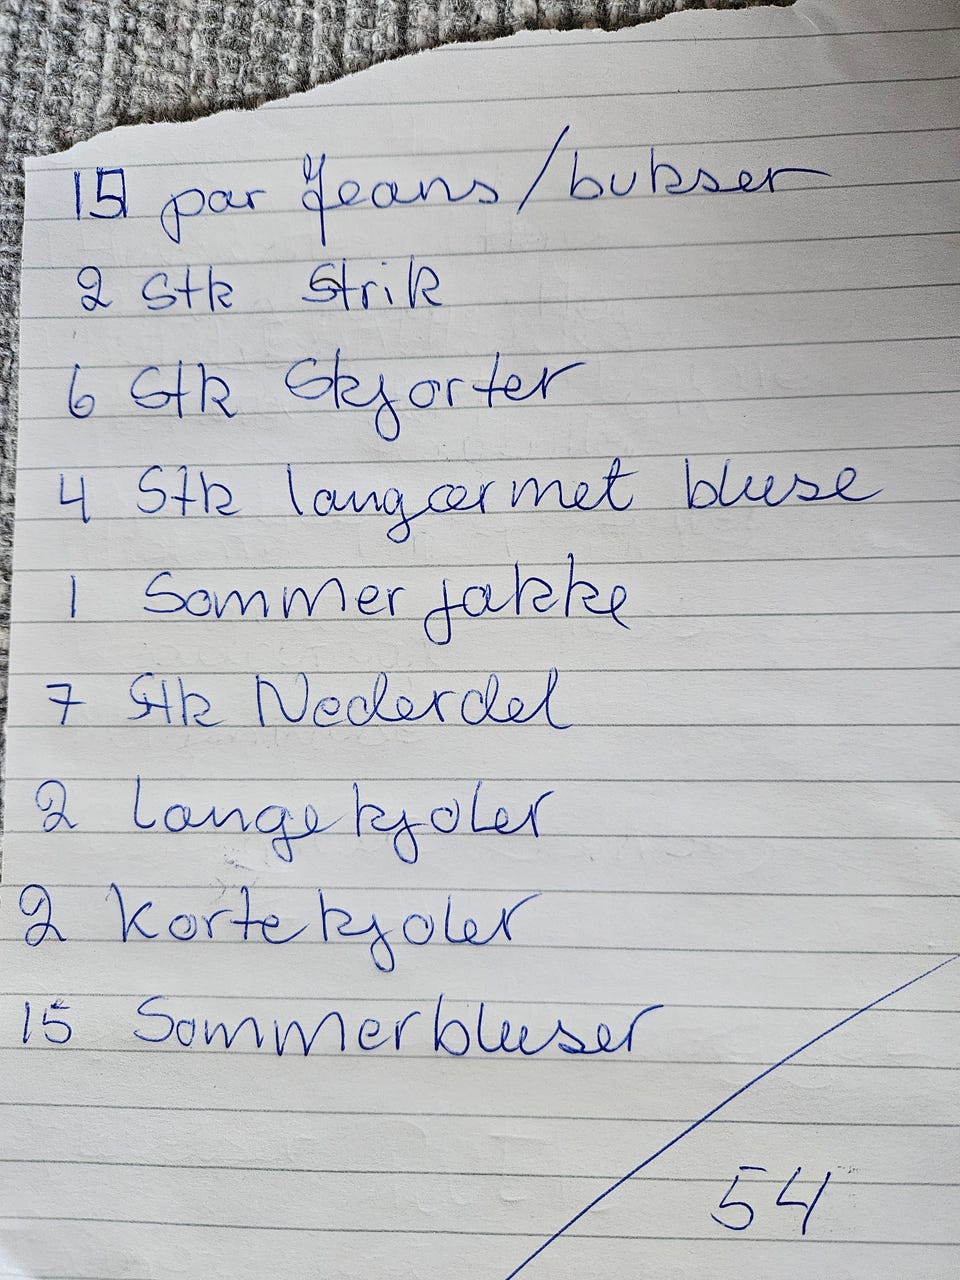 15 par Jeans/bukser
2 Stk Strik
6 Stk Skjorter
4 Stk langærmet bluse
1 Sommerjakke
7 Stk Nederdel
2 Langekjoler
2 Kortekjoler
15 Sommerbluser
54